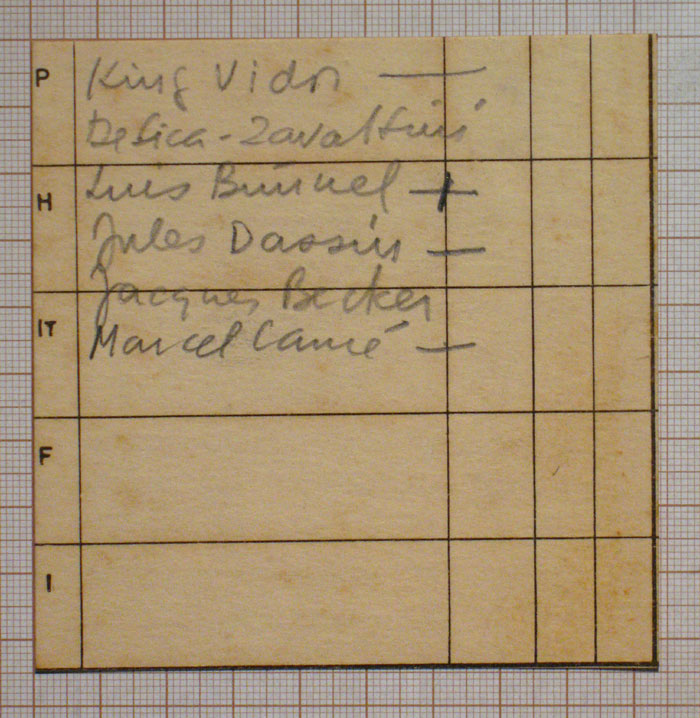 P King Vidor —
DeSica - Zavattini
H Luis Bunuel +
Jules Dassin —
Jacques Becker
IT Marcel Carné —
F
I